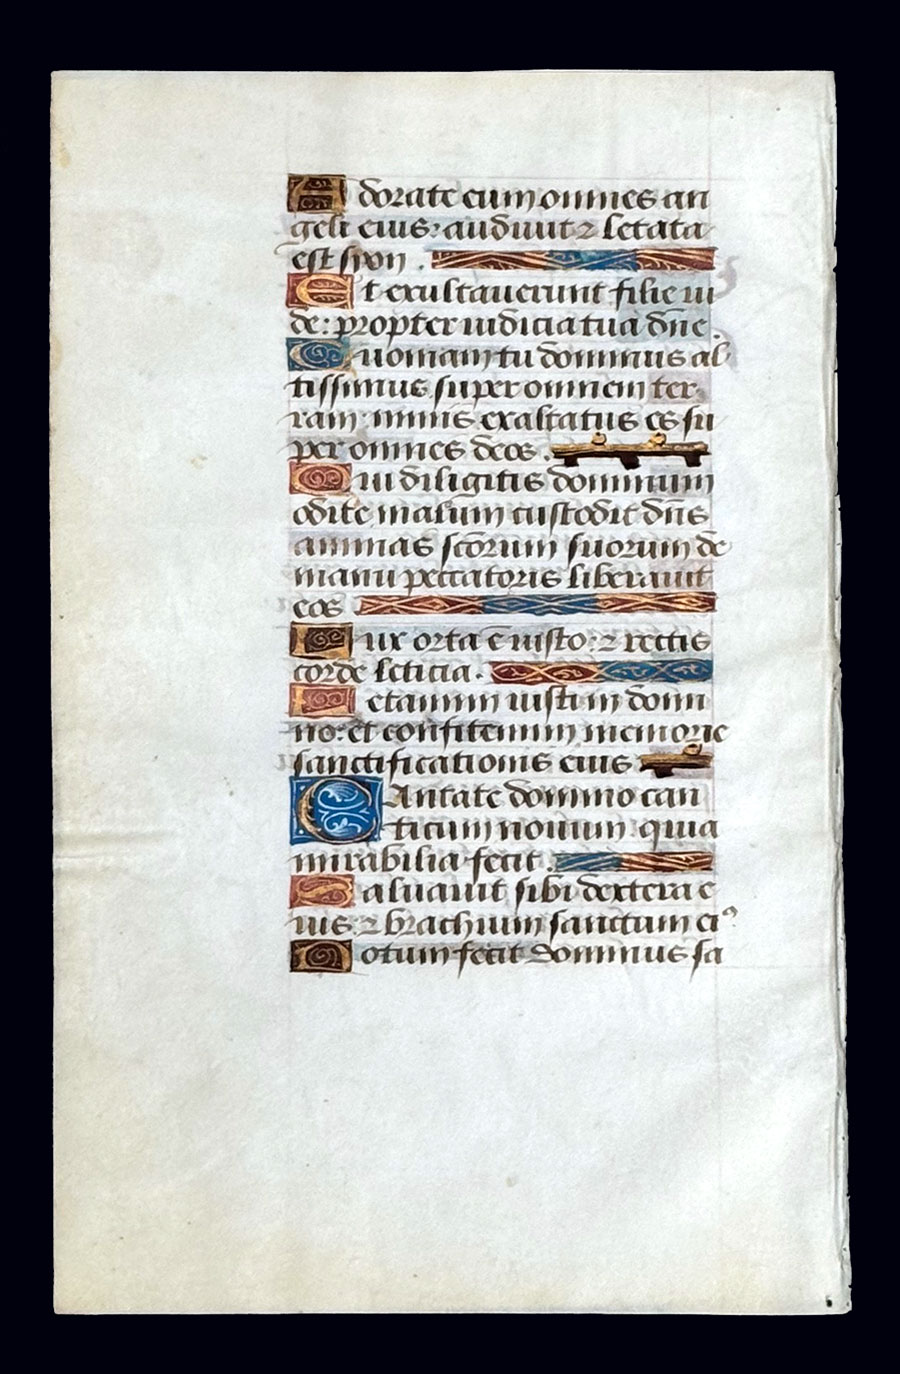 Adorate eum omnes an
geli eius: audiuit ⁊ letata
est syon .
Et exultauerunt filie iu
de: propter iudicia tua dn̄e.
Quoniam tu dominus al
tissimus super omnem ter
ram nimis exaltatus es su
per omnes deos .
Qui diligitis dominum
odite malum custodit dn̄s
animas sc̄orum suorum de
manu peccatoris liberauit
eos
Lux orta ē iusto: ⁊ rectis
corde leticia .
Letamini iusti in domi
no: et confitemini memorie
sanctificationis eius
CAntate domino can
ticum nouum: quia
mirabilia fecit .
Saluauit sibi dextera e
ius: ⁊ brachium sanctum ei⁹.
Notum fecit dominus sa